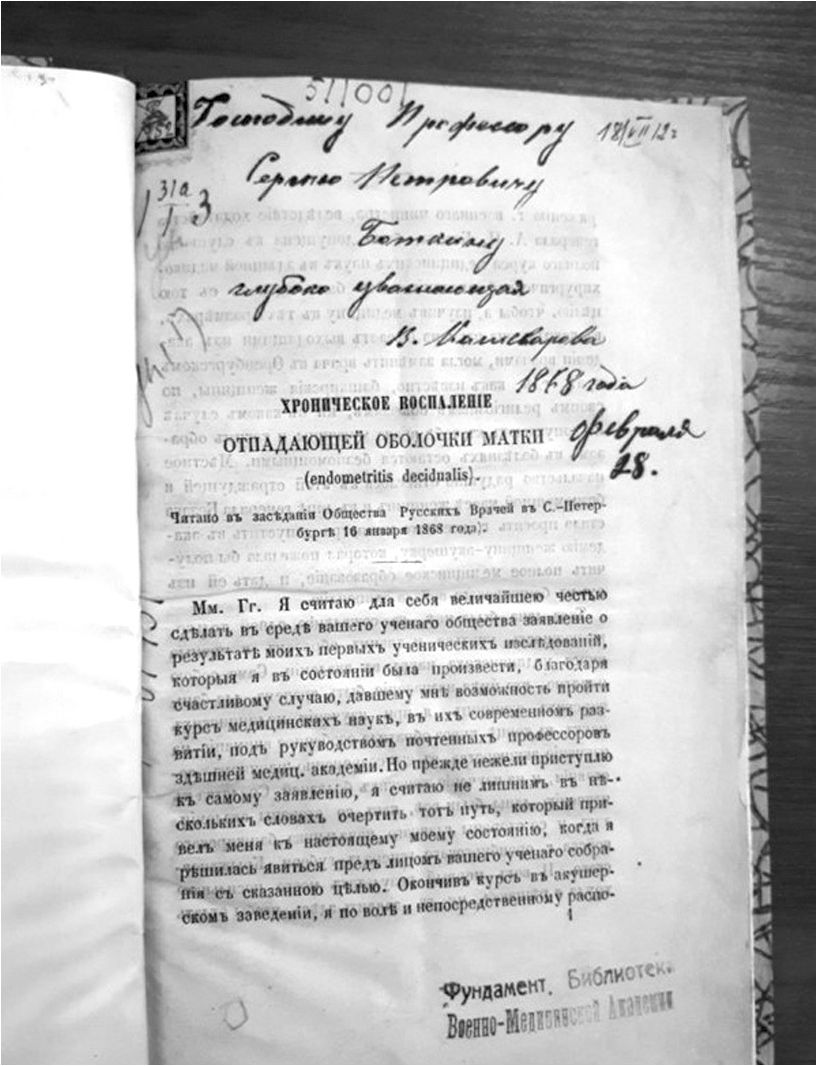 511001
Господину Профессору
18/VII 12 г
Сергею Петровичу
31а
I 3
Боткину
глубоко уважающая
В. Кашеварова
1868 года
Февраля
28.
ХРОНИЧЕСКОЕ ВОСПАЛЕНІЕ
ОТПАДАЮЩЕЙ ОБОЛОЧКИ МАТКИ
(endometritis decidualis).
Читано въ засѣданіи Общества Русскихъ Врачей въ С.-Петер-
бургѣ 16 января 1868 года).
Мм. Гг. Я считаю для себя величайшею честью
сдѣлать въ средѣ вашего ученаго общества заявленіе о
результатѣ моихъ первыхъ ученическихъ изслѣдованій,
которыя я въ состояніи была произвести, благодаря
счастливому случаю, давшему мнѣ возможность пройти
курсъ медицинскихъ наукъ, въ ихъ современномъ раз-
витіи, подъ рукуводствомъ почтенныхъ профессоровъ
здѣшней медиц. академіи. Но прежде нежели приступлю
къ самому заявленію, я считаю не лишнимъ въ нѣ-
сколькихъ словахъ очертить тотъ путь, который при-
велъ меня къ настоящему моему состоянію, когда я
рѣшилась явиться предъ лицомъ вашего ученаго собра-
нія съ сказанною цѣлью. Окончивъ курсъ въ акушер-
скомъ заведеніи, я по волѣ и непосредственному распо-
1
Фундамент. Библиотека
Военно-Медицинской Академии